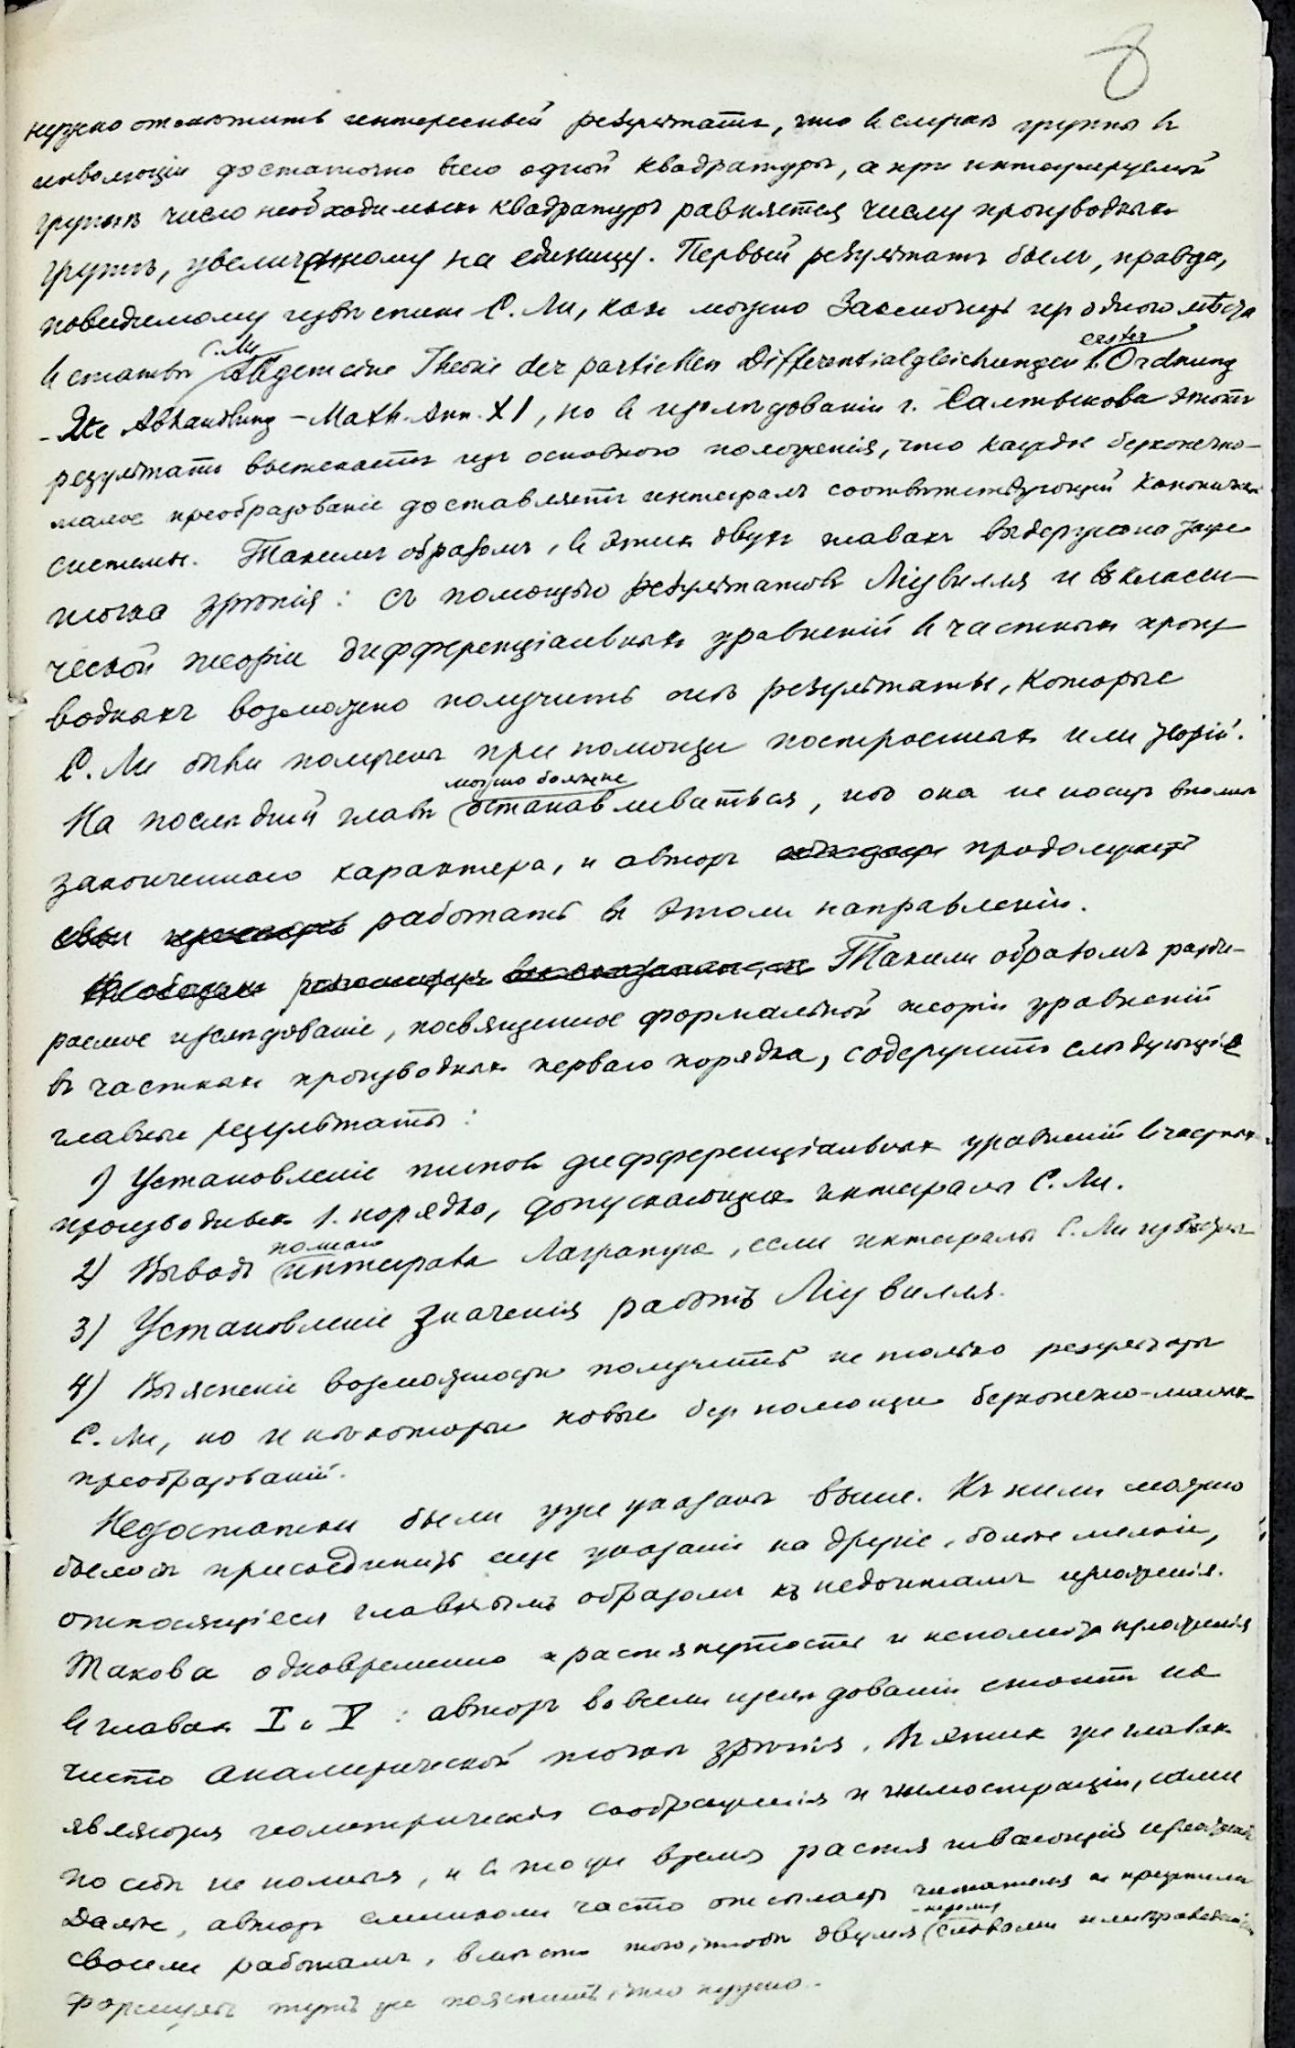 8
нужно отметить интересный результатъ, что въ случаѣ группы въ
инволюціи достаточно всего одной квадратуры, а при интегрируемой
группѣ число необходимыхъ квадратуръ равняется числу производныхъ
группъ, увеличенному на единицу. Первый результатъ былъ, правда,
повидимому извѣстенъ С. Ли, какъ можно заключить изъ одного мѣста
въ статьѣ С. Ли Allgemeine Theorie der partiellen Differentialgleichungen erster Ordnung
- 2te Abhandlung - Math. Ann. XI, но въ изслѣдованіи г. Салтыкова этотъ
результатъ вытекаетъ изъ основного положенія, что каждое безконечно-
малое преобразованіе доставляетъ интегралъ соотвѣтствующей канонич.
системы. Такимъ образомъ, въ этихъ двухъ главахъ выдержана та же
точка зрѣнія: съ помощью результатовъ Ліувилля и классси-
ческой теоріи дифференціальныхъ уравненій въ частныхъ произ-
водныхъ возможно получить тѣ результаты, которые
С. Ли были получены при помощи построенныхъ имъ теорій.
На послѣдней главѣ можно болѣе не останавливаться, ибо она не носитъ вполнѣ
законченнаго характера, и авторъ продолжаетъ
работать въ этомъ направленіи.
Такимъ образомъ разби-
раемое изслѣдованіе, посвященное формальной теоріи уравненій
въ частныхъ производныхъ перваго порядка, содержитъ слѣдующіе
главные результаты:
1) Установленіе типовъ дифференціальныхъ уравненій въ частныхъ
производныхъ 1. порядка, допускающихъ интегралъ С. Ли.
2) Выводъ полнаго интеграла Лагранжа, если интегралъ С. Ли извѣстенъ
3) Установленіе значенія работъ Ліувилля.
4) Выясненіе возможности получить не только результаты
С. Ли, но и нѣкоторые новые безъ помощи безконечно-малыхъ
преобразованій.
Недостатки были уже указаны выше. Къ нимъ можно
было бы присоединить еще указанія на другіе, болѣе мелкіе,
относящіеся главнымъ образомъ къ недочетамъ изложенія.
Такова одновременно и растянутость и неполнота изложенія
въ главахъ I и V: авторъ во всемъ изслѣдованіи стоитъ на
чисто аналитической точкѣ зрѣнія. Въ этихъ же главахъ
являются геометрическія соображенія и иллюстраціи, сами
по себѣ не полныя, и въ то же время растягивающія изложеніе
Далѣе, авторъ слишкомъ часто отсылаетъ читателя къ прежнимъ
своимъ работамъ, вмѣсто того, чтобы двумя словами или приведеніемъ
формулъ тутъ же пояснить, что нужно.